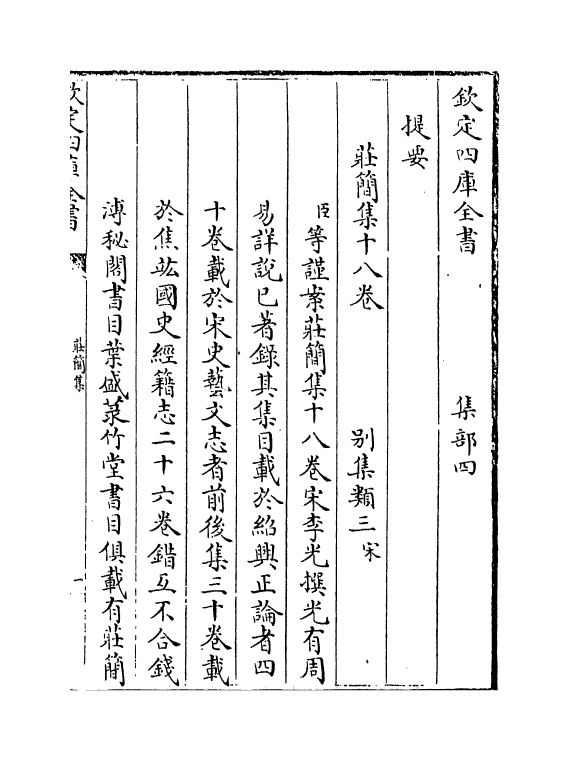 欽定四庫全書　集部四
提要
莊簡集十八卷　別集類三宋
臣等謹案莊簡集十八卷宋李光撰光有周
易詳說已著錄其集目載於紹興正論者四
十卷載於宋史藝文志者前後集三十卷載
於焦竑國史經籍志二十六卷錯互不合錢
溥秘閣書目葉盛菉竹堂書目俱載有莊簡
欽定四庫全書
莊簡集
一